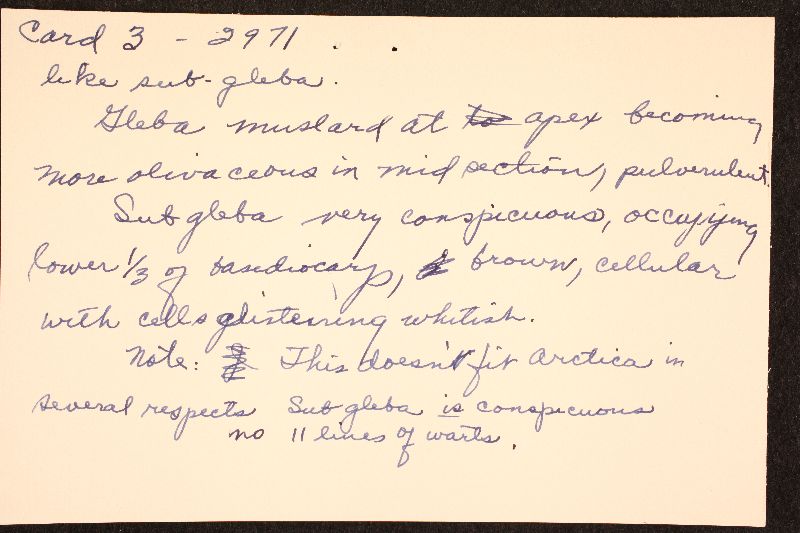 Card 3 - 2971
like sub-gleba.
Gleba mustard at to apex becoming
more olivaceous in mid section, pulverulent.
Subgleba very conspicuous, occupying
lower 1/3 of basidiocarp, brown, cellular
with cells glistening whitish.
Note: This doesn't fit Arctica in
several respects Subgleba is conspicuous
no 11 lines of warts.